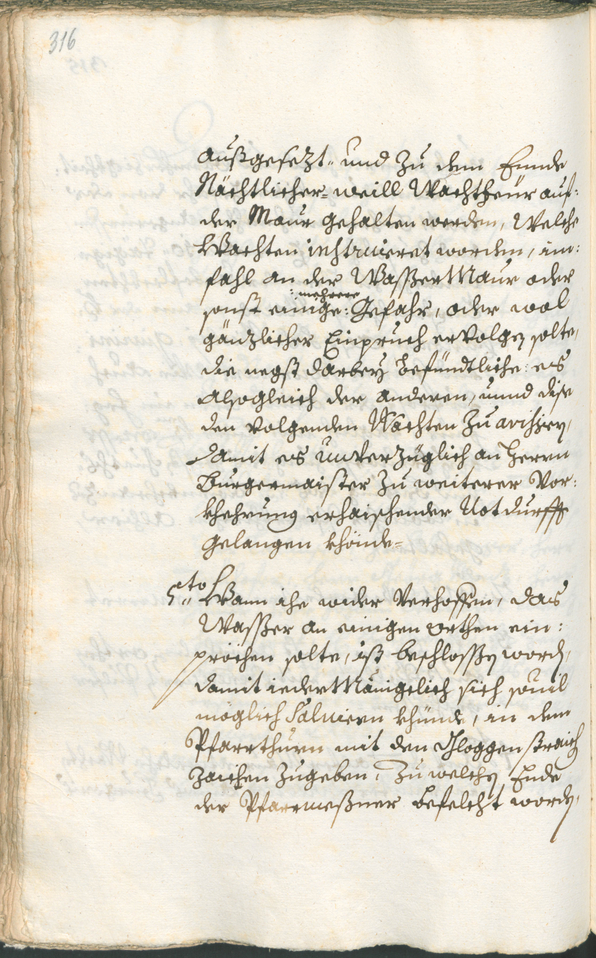 316
außgesezt- und zu dem Ennde
Nächtlicher- weill Wachtheür auf:
der Maur gehalten werden, Welche
Wachten instruieret worden, im-
fahl an der Wasser Maur oder
: mehrere
sonst einige: Gefahr, oder wol
gänzlicher Einpruch ervolgen solte,
die negst darbey befündtliche: es
alsogleich der anderen, unnd dise
den volgenden Wachten zu avisiern,
damit es unverzüglich an Herrn
Burgermaister zu weiterer Vor:
khehrung erhaischender Notdurfft
gelangen khönde-
5to Wann ihe wider Verhoffen, das
Wasser an einigen Orthen ein:
prechen solte, ist beschlossen worden,
damit ieder Mänigelich sich souil
möglich Salviern khünde, in dem
Pfarrthurn mit den Gloggen straich
zaichen zugeben, Zu welchen Ende
der Pfarrmeßner befelcht worden,